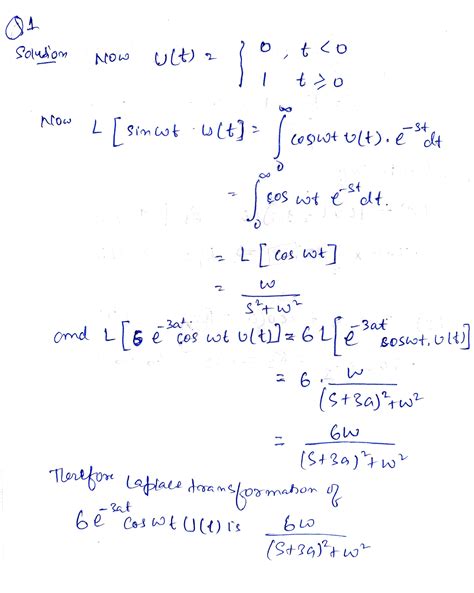 Q1
Solution Now U(t) = { 0 , t < 0
1 t ≥ 0
Now L [ sin wt · u(t) ] = ∫₀^∞ cos wt U(t) · e^{-st} dt
= ∫₀^∞ cos wt e^{-st} dt.
= L [ cos wt ]
= w / (s² + w²)
and L [ 6 e^{-3at} cos wt U(t) ] = 6 L [ e^{-3at} cos wt. U(t) ]
= 6 · w / ((S+3a)² + w²)
= 6w / ((S+3a)² + w²)
Therefore Laplace transformation of
6 e^{-3at} cos wt U(t) is 6w / ((S+3a)² + w²)